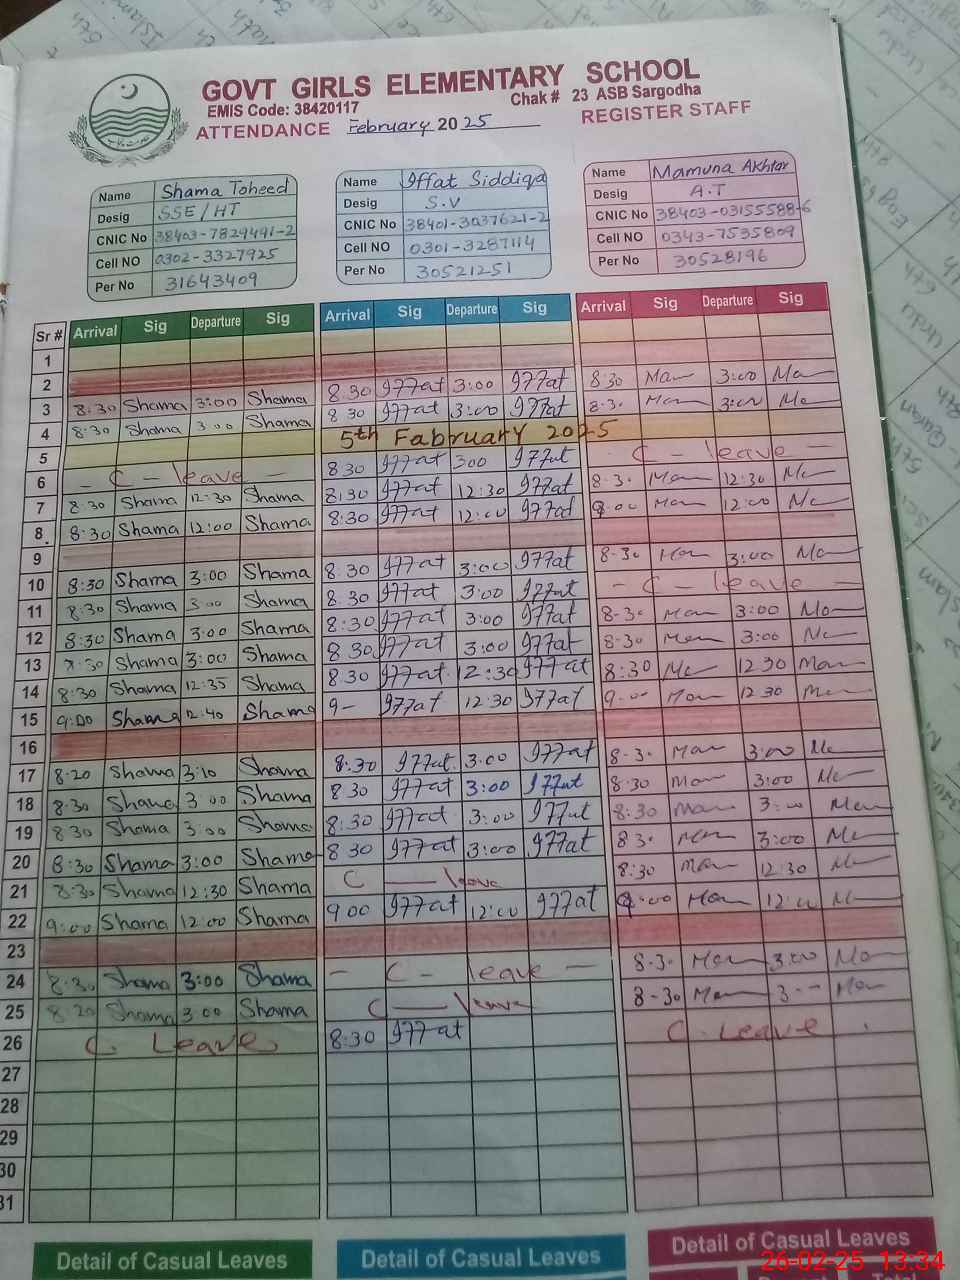 GOVT GIRLS ELEMENTARY SCHOOL
EMIS Code: 38420117 Chak # 23 ASB Sargodha
ATTENDANCE February 2025 REGISTER STAFF
Name Shama Toheed
Desig SSE/HT
CNIC No 38403-7829491-2
Cell NO 0302-3327925
Per No 31643409
Name Iffat Siddiqa
Desig S.V
CNIC No 38401-3037621-2
Cell NO 0301-3287114
Per No 30521251
Name Mamuna Akhtar
Desig A.T
CNIC No 38403-03155588-6
Cell NO 0343-7535809
Per No 30528196
Sr # Arrival Sig Departure Sig Arrival Sig Departure Sig Arrival Sig Departure Sig
1
2
3 8:30 Shama 3:00 Shama 8.30 Iffat 3:00 Iffat 8:30 Mam 3:00 Mam
4 8:30 Shama 3 00 Shama 8 30 Iffat 3:00 Iffat 8-3. Mam 3:00 Mam
5 5th Fabruary 2025
6 C - leave - 8 30 Iffat 3 00 Iffat - C - leave -
7 8 30 Shama 12:30 Shama 8:30 Iffat 12:30 Iffat 8-3. Mam 12:30 Mam
8 8:30 Shama 12:00 Shama 8:30 Iffat 12:00 Iffat 9-00 Mam 12:00 Mam
9
10 8:30 Shama 3:00 Shama 8.30 Iffat 3:00 Iffat 8-30 Mam 3:00 Mam
11 8:30 Shama 3:00 Shama 8.30 Iffat 3:00 Iffat - C - leave -
12 8:30 Shama 3:00 Shama 8:30 Iffat 3:00 Iffat 8-30 Mam 3:00 Mam
13 8:30 Shama 3:00 Shama 8.30 Iffat 3:00 Iffat 8-30 Mam 3:00 Mam
14 8:30 Shama 12:35 Shama 8.30 Iffat 12:30 Iffat 8:30 Mam 12 30 Mam
15 9:00 Shama 12:40 Shama 9- Iffat 12 30 Iffat 9-00 Mam 12 30 Mam
16
17 8-20 Shama 3:10 Shama 8:30 Iffat 3:00 Iffat 8-3. Mam 3:00 Mam
18 8:30 Shama 3 00 Shama 8 30 Iffat 3:00 Iffat 8:30 Mam 3:00 Mam
19 8 30 Shama 3:00 Shama 8:30 Iffat 3:00 Iffat 8:30 Mam 3:00 Mam
20 8:30 Shama 3:00 Shama 8 30 Iffat 3:00 Iffat 8 3. Mam 3:00 Mam
21 8:30 Shama 12:30 Shama C leave 8:30 Mam 12:30 Mam
22 9:00 Shama 12:00 Shama 9 00 Iffat 12:00 Iffat 9:00 Mam 12:00 Mam
23
24 8:30 Shama 3:00 Shama - C - leave - 8-3. Mam 3:00 Mam
25 8 20 Shama 3 00 Shama C leave 8-30 Mam 3 -- Mam
26 C Leave 8:30 Iffat C - Leave
27
28
29
30
31
Detail of Casual Leaves Detail of Casual Leaves Detail of Casual Leaves
26-02-25 13:34